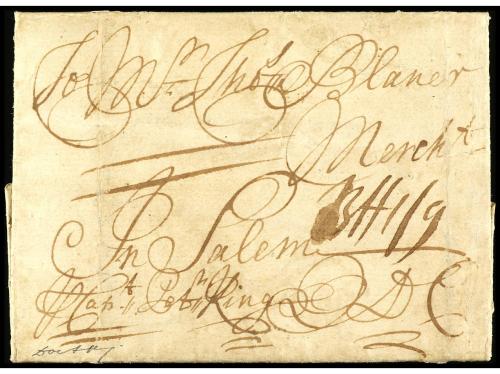 To Mr Thos Blaner
Mercht
In Salem
Capt Petr King D C